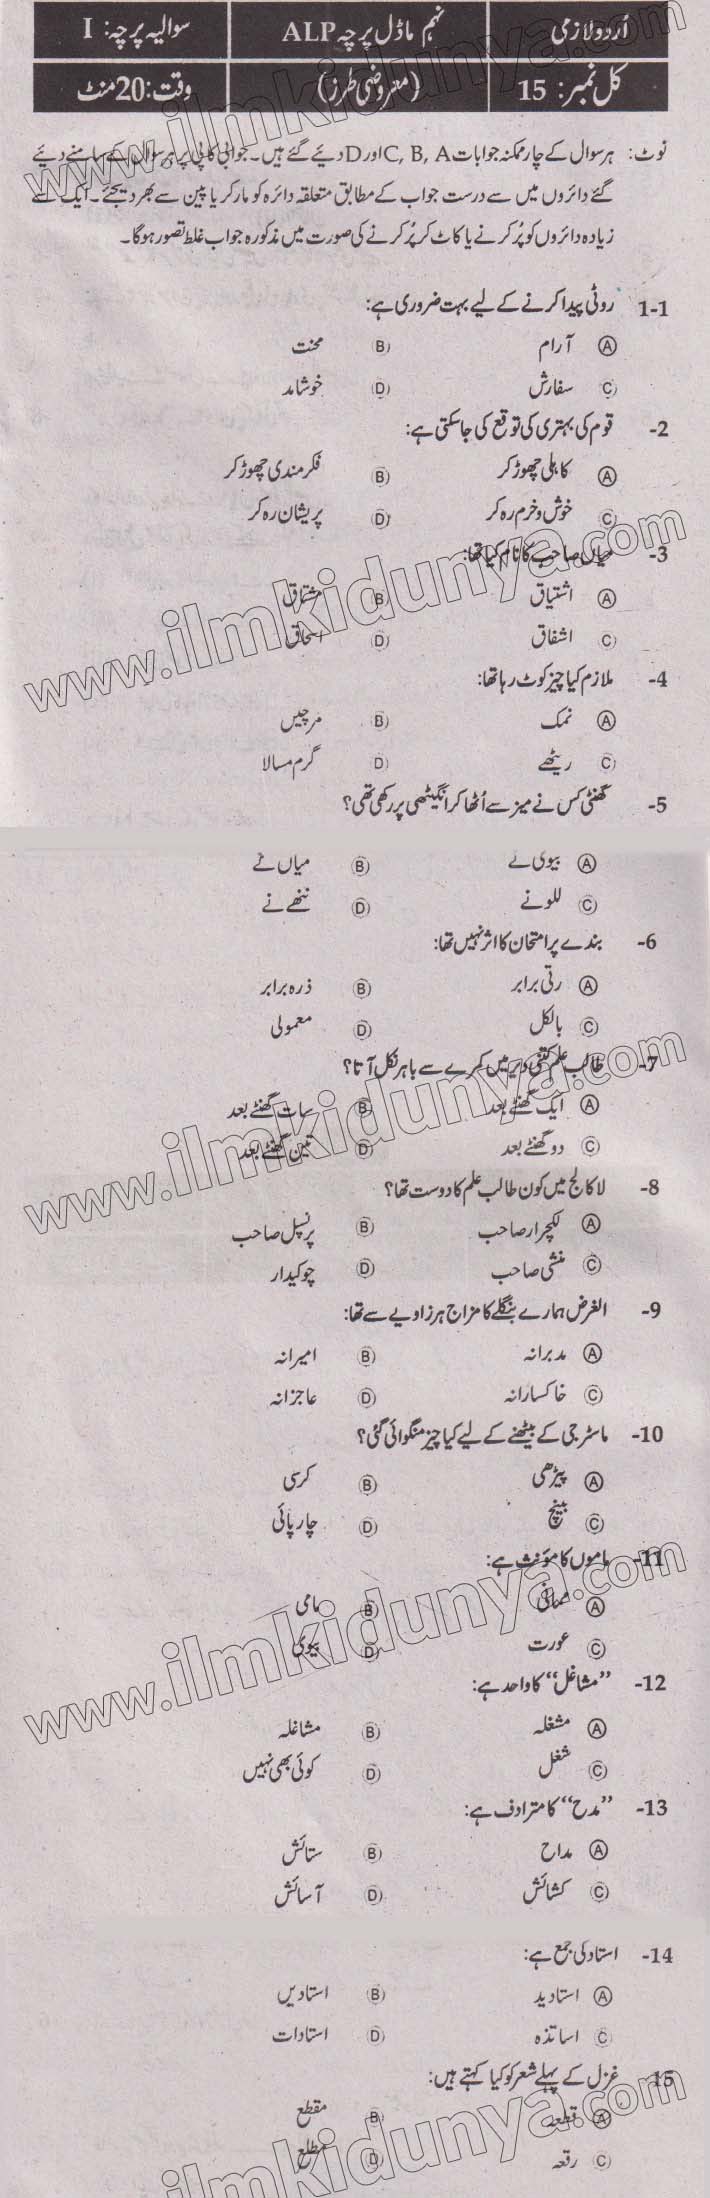 اُردو لازمی
نہم ماڈل پرچہ ALP
سوالیہ پرچہ: I
کل نمبر: 15
(معروضی طرز)
وقت: 20 منٹ
نوٹ: ہر سوال کے چار ممکنہ جوابات C, B, A اور D دیئے گئے ہیں۔ جوابی کاپی پر ہر سوال کے سامنے دیئے
گئے دائروں میں سے درست جواب کے مطابق متعلقہ دائرہ کو مارکر یا پین سے بھر دیجئے۔ ایک سے
زیادہ دائروں کو پُر کرنے یا کاٹ کر پُر کرنے کی صورت میں مذکورہ جواب غلط تصور ہو گا۔
1-1 روٹی پیدا کرنے کے لیے بہت ضروری ہے:
(A) آرام (B) محنت
(C) سفارش (D) خوشامد
2- قوم کی بہتری کی توقع کی جا سکتی ہے:
(A) کاہلی چھوڑ کر (B) فکر مندی چھوڑ کر
(C) خوش و خرم رہ کر (D) پریشان رہ کر
3- میاں صاحب کا نام کیا تھا:
(A) اشتیاق (B) مشتاق
(C) اشفاق (D) اسحاق
4- ملازم کیا چیز کوٹ رہا تھا:
(A) نمک (B) مرچیں
(C) ریٹھے (D) گرم مسالا
5- گھنٹی کس نے میز سے اُٹھا کر انگیٹھی پر رکھی تھی؟
(A) بیوی نے (B) میاں نے
(C) للو نے (D) ننھے نے
6- بندے پر امتحان کا اثر نہیں تھا:
(A) رتی برابر (B) ذرہ برابر
(C) بالکل (D) معمولی
7- طالب علم کتنی دیر میں کمرے سے باہر نکل آتا؟
(A) ایک گھنٹے بعد (B) سات گھنٹے بعد
(C) دو گھنٹے بعد (D) تین گھنٹے بعد
8- لا کالج میں کون طالب علم کا دوست تھا؟
(A) لکچرار صاحب (B) پرنسپل صاحب
(C) منشی صاحب (D) چوکیدار
9- الغرض ہمارے بنگلے کا مزاج ہر زاویے سے تھا:
(A) مدبرانہ (B) امیرانہ
(C) خاکسارانہ (D) عاجزانہ
10- ماسٹر جی کے بیٹھنے کے لیے کیا چیز منگوائی گئی؟
(A) پیڑھی (B) کرسی
(C) بینچ (D) چارپائی
11- ماموں کا مؤنث ہے:
(A) ممانی (B) مامی
(C) عورت (D) بیوی
12- ”مشاغل“ کا واحد ہے:
(A) مشغلہ (B) مشاغلہ
(C) شغل (D) کوئی بھی نہیں
13- ”مدح“ کا مترادف ہے:
(A) مداح (B) ستائش
(C) کشائش (D) آسائش
14- استاد کی جمع ہے:
(A) استادید (B) استادیں
(C) اساتذہ (D) استادات
15- غزل کے پہلے شعر کو کیا کہتے ہیں:
(A) قطعہ (B) مقطع
(C) رقعہ (D) مطلع
www.ilmkidunya.com
www.ilmkidunya.com
www.ilmkidunya.com
www.ilmkidunya.com
www.ilmkidunya.com